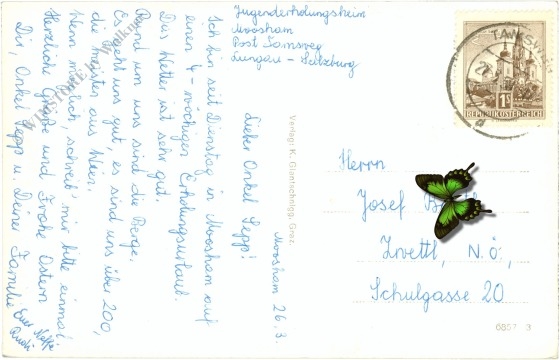 Jugenderholungsheim
Moosham
Post Tamsweg
Lungau - Salzburg
Moosham 26.3.
Lieber Onkel Sepp!
Ich bin seit Dienstag in Moosham auf
einen 4-wöchigen Erholungsurlaub.
Das Wetter ist sehr gut.
Rund um uns sind die Berge.
Es geht uns gut, es sind uns über 200,
die meisten aus Wien.
Wenn möglich, schreib' mir bitte einmal.
Herzliche Grüße und Frohe Ostern
Dir, Onkel Sepp u. Deine Familie
Euer Neffe
Rudi
Verlag: K. Glantschnigg, Graz.
TAMSWEG
1S
REPUBLIK ÖSTERREICH
Herrn
Josef
Zwettl, N.Ö.
Schulgasse 20
6857 3